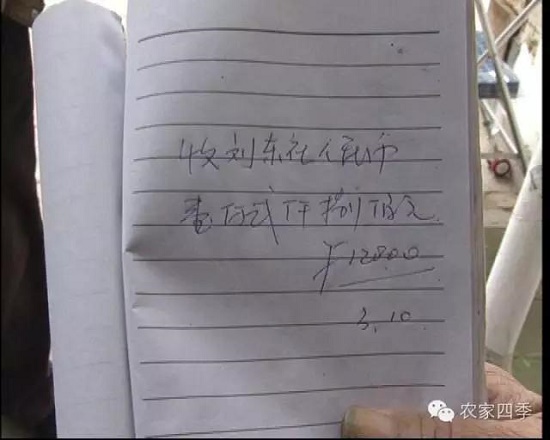 收刘东社人民币
壹万贰仟捌佰元
￥12800
3.10
农家四季